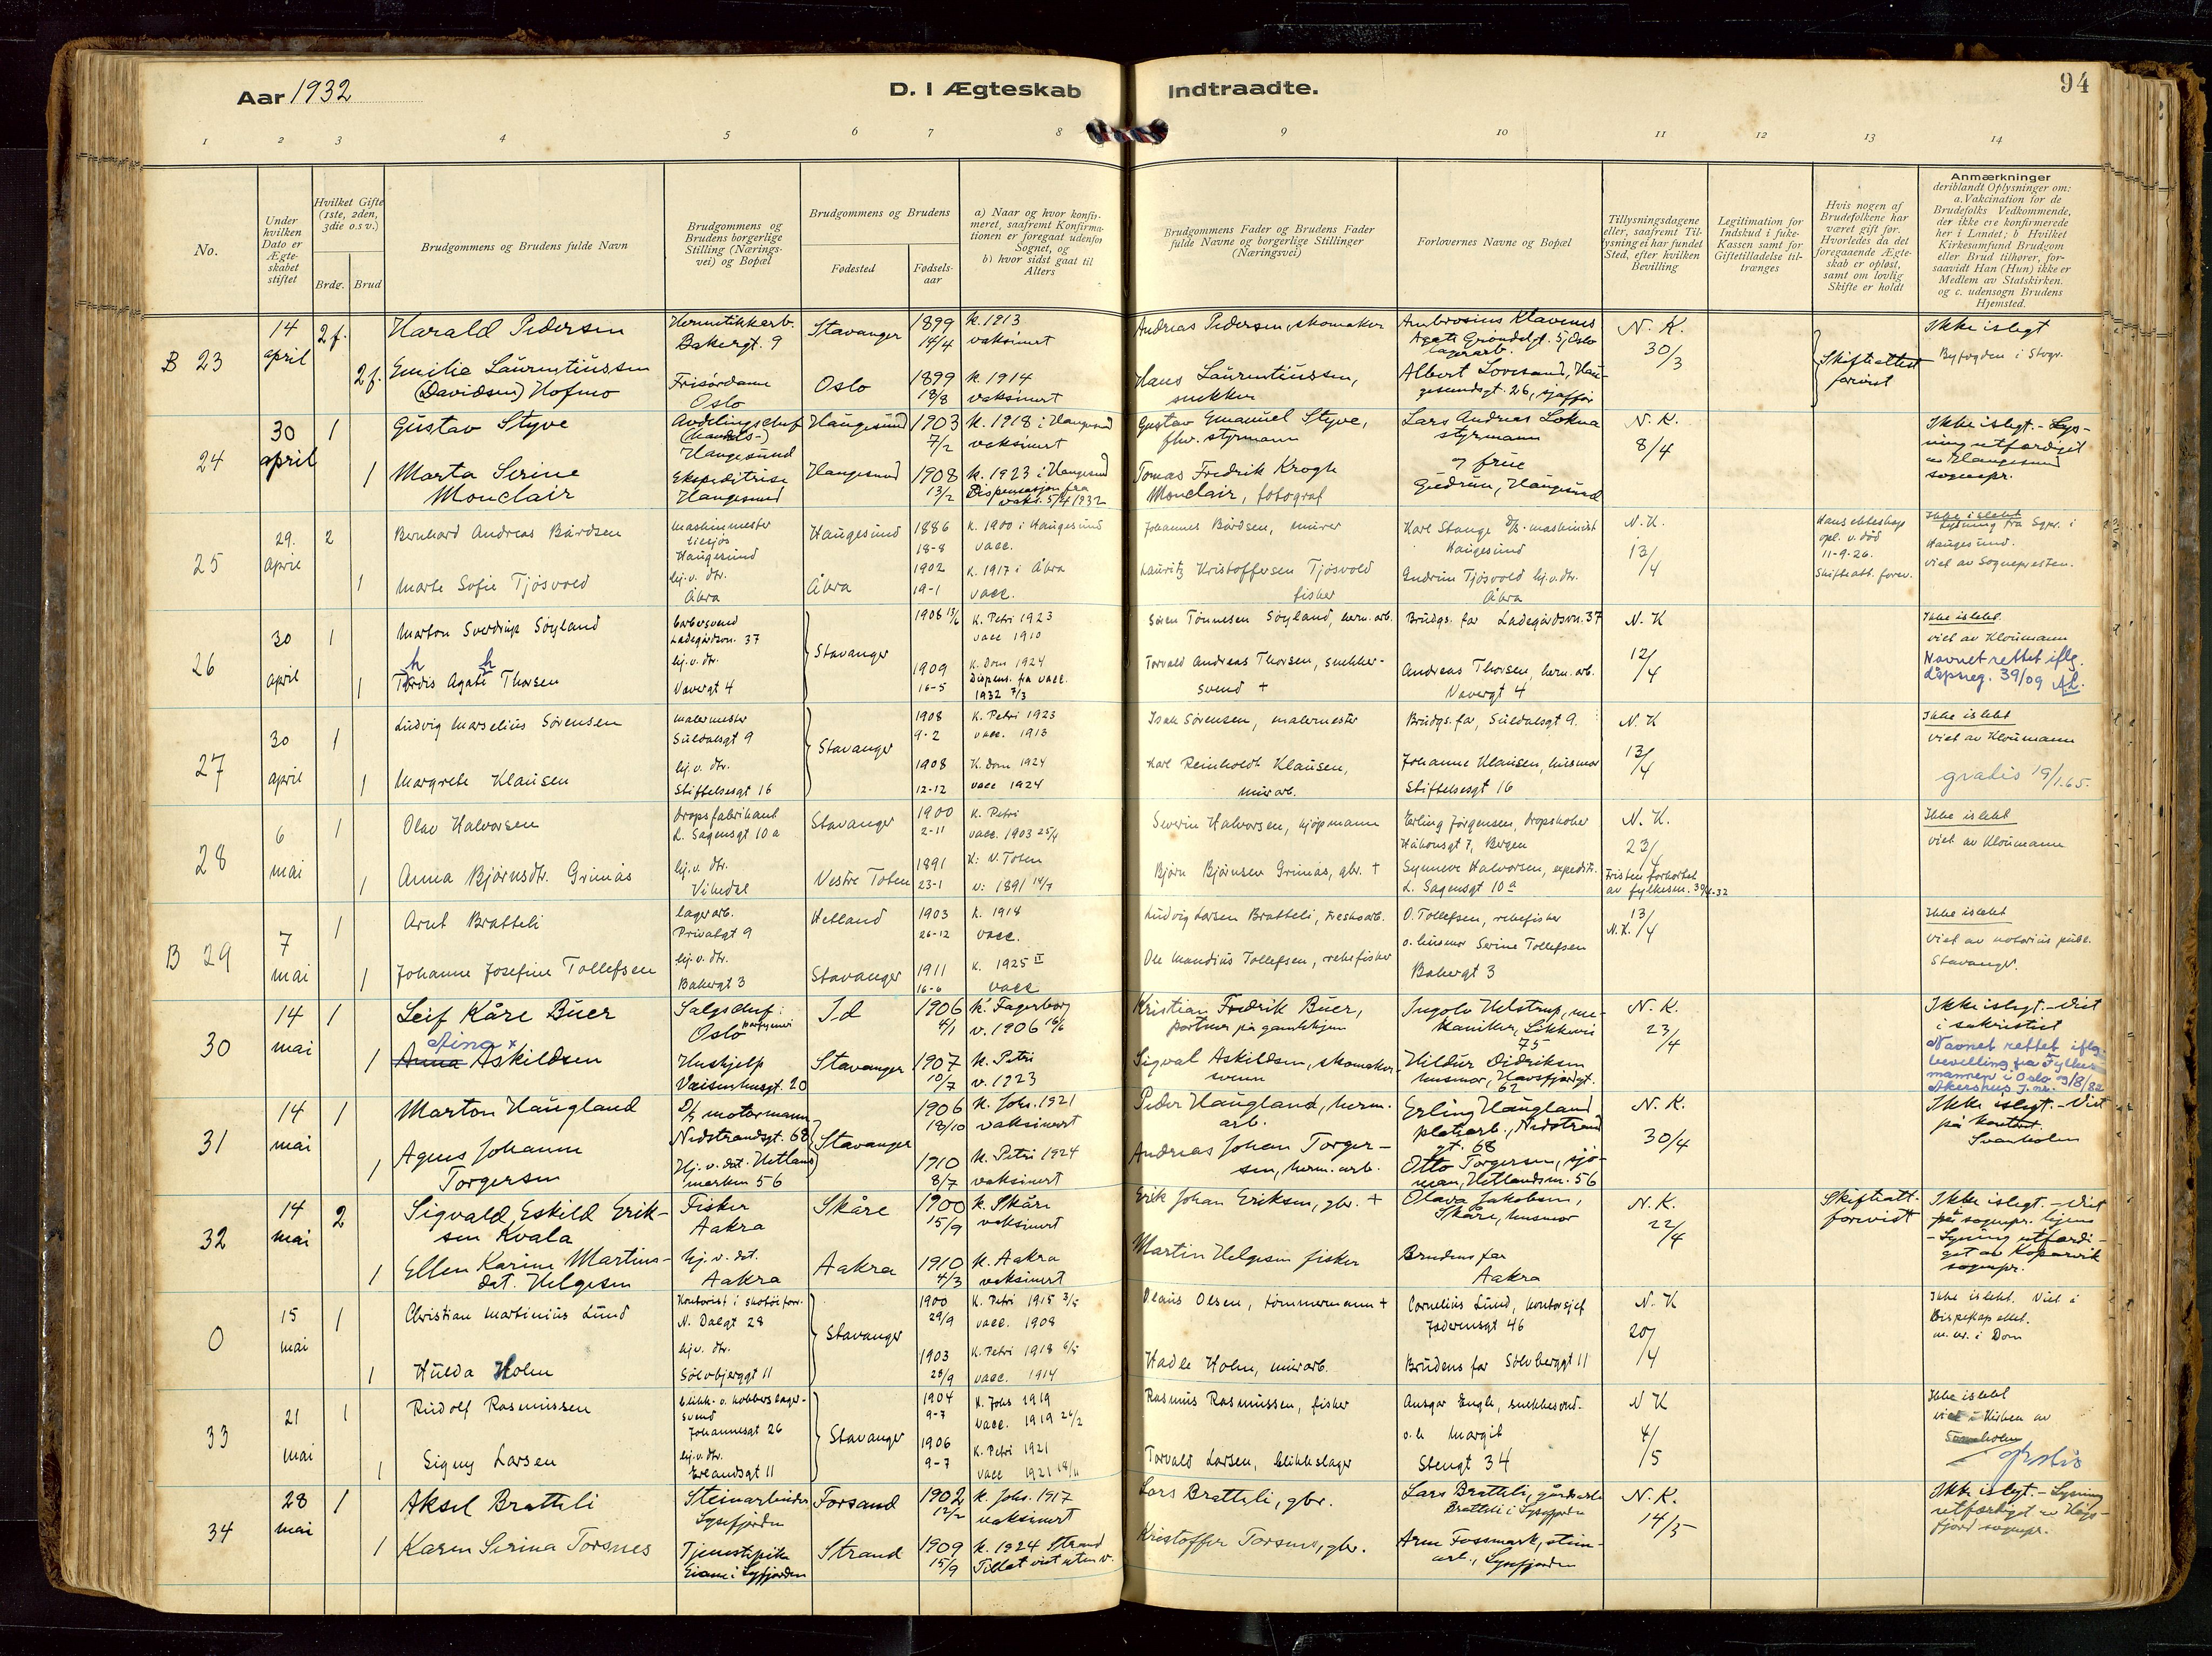 Aar 1932
D. I Ægteskab Indtraadte.
94
1 2 3 4 5 6 7 8 9 10 11 12 13 14
No.
Under hvilken Dato er Ægteskabet stiftet
Hvilket Gifte (1ste, 2den, 3die o.s v.)
Brdg. Brud
Brudgommens og Brudens fulde Navn
Brudgommens og Brudens borgerlige Stilling (Næringsvei) og Bopæl
Brudgommens og Brudens
Fødested
Fødselsaar
a) Naar og hvor konfirmeret, saafremt Konfirmationen er foregaat udenfor Sognet, og
b) hvor sidst gaat til Alters
Brudgommens Fader og Brudens Fader fulde Navne og borgerlige Stillinger (Næringsvei)
Forlovernes Navne og Bopæl
Tillysningsdagene eller, saafremt Tillysning ei har fundet Sted, efter hvilken Bevilling
Legitimation for Indskud i Enke-Kassen samt for Giftetilladelse til-trænges
Hvis nogen af Brudefolkene har været gift før. Hvorledes da det foregaaende Ægteskab er opløst, samt om lovlig Skifte er holdt
Anmærkninger
deriblandt Oplysninger om: a. Vakcination for de Brudefolks Vedkommende, der ikke ere konfirmerede her i Landet; b Hvilket Kirkesamfund Brudgom eller Brud tilhører, forsaavidt Han (Hun) ikke er Medlem av Statskirken. og c. udensogn Brudens Hjemsted.
B 23 14 april 2 f. Harald Pedersen Hermetikkarb. Bakergt. 9 Stavanger 1899 14/4 k. 1913 vaksinert Andreas Pedersen, skomaker Ambrosius Klavenes Agate Grøndelgt. 5, Oslo lagerarb. N. K. 30/3 Skifteattest forevist Ikke i slegt Byfogden i Stvgr.
2 f. Emilie Laurentiussen (Davidsen) Hofmo Frisørdame Oslo Oslo 1899 18/8 k. 1914 vaksinert Hans Laurentiussen, snekker Albert Lovesand, Haugesundsgt. 26, sjaffør
24 30 april 1 Gustav Styve Avdelingschef (handels-) Haugesund Haugesund 1903 7/2 k. 1918 i Haugesund vaksinert Gustav Emanuel Styve, fhv. styrmann Lars Andreas Lokna styrmann N. K. 8/4 Ikke i slegt. - Lysning utferdiget av Haugesund sognepr.
1 Marta Serine Monclair Ekspeditrise Haugesund Haugesund 1908 13/2 k. 1923 i Haugesund Dispensasjon fra vaks. 5/4 1932 Tomas Fredrik Krogh Monclair, fotograf og frue Gudrun, Haugesund
25 29. april 2 Bernhard Andreas Bårdsen Maskinmester Haugesund Haugesund 1886 18-8 K. 1900 i Haugesund vacc. Johannes Bårdsen, murer Karl Stange D/S. maskinist Haugesund N. K. 13/4 Hans ekteskap opl. v. død 11-9-26. Skifteatt. forev. Ikke i slekt Lysning fra Sgpr. i Haugesund. Viet av Sognepresten.
1 Marte Sofie Tjøsvold hj. v. dtr. Åkra Åkra 1902 19-1 K. 1917 i Åkra vacc. Lauritz Kristoffersen Tjøsvold fisker Gudrun Tjøsvold hj. v. dtr. Åkra
26 30 april 1 Morton Sverdrup Søyland barbersvend Ladegårdsvn. 37 Stavanger 1908 13/6 K. Petri 1923 vacc 1910 Søren Tønnesen Søyland, herm. arb. Brudgs. far Ladegårdsvn. 37 N. K 12/4 Ikke i slekt. Viet av Kloumann Navnet rettet iflg. dåpsreg. 39/09 AL.
1 Thordis Agathe Thorsen hj. v. dtr. Vavergt 4 1909 16-5 K. Dom 1924 Dispens. fra vacc. 1932 7/3 Torvald Andreas Thorsen, snekkersvend + Andreas Thorsen, herm. arb. Vavergt 4
27 30 april 1 Ludvig Marselius Sørensen Malermester Suldalsgt 9 Stavanger 1908 9-2 K. Petri 1923 vacc. 1913 Isak Sørensen, malermester Brudgs. far, Suldalsgt 9. N. K 13/4 Ikke i slekt Viet av Kloumann
1 Margrete Klausen hj. v. dtr. Stiftelsesgt 16 1908 12-12 K. Dom 1924 vacc 1924 Karl Reinholdt Klausen, murarb. Johanne Klausen, husmor Stiftelsesgt 16 gratis 19/1.65.
28 6 mai 1 Olav Halvorsen dropsfabrikant L. Sagensgt 10 a Stavanger 1900 2-11 K. Petri vacc. 1903 25/4 Severin Halvorsen, kjøpmann Erling Jørgensen, dropskoker Håkonsgt 7, Bergen N. K. 23/4 Ikke i slekt Viet av Kloumann
1 Anna Bjørnsdtr. Grimås hj. v. dtr. Vikedal Vestre Toten 1891 23-1 K: V. Toten v: 1891 14/7 Bjørn Bjørnsen Grimås, gbr. + Synneve Halvorsen, expeditr. L. Sagensgt 10 a Fristen forkortet av fylkesm. 30/4-32
B 29 7 mai 1 Arnt Bratteli lagerarb. Privatgt 9 Hetland 1903 26-12 K. 1918 vacc. Ludvig Larsen Bratteli, Presksarb. O. Tollefsen, rekefisker o. husmor Serine Tollefsen Bakergt 3 13/4 N. K. Ikke i slekt Viet av notarius publ. Stavanger.
1 Johanne Josefine Tollefsen hj. v. dtr. Bakergt 3 Stavanger 1911 16-6 K. 1925 II vacc Ole Mandius Tollefsen, rekefisker
30 14 mai 1 Leif Kåre Buer Salgschef: parfymeri Oslo Id 1906 4/1 k. Fagerborg v. 1906 16/6 Kristian Fredrik Buer, portner på gamlehjem Ingolv Helstrup, mekaniker, Løkkevei 75 N. K. 23/4 Ikke i slegt. - Viet i sakristiet
1 Anna Aina × Askildsen Hushjelp Vaisenhusgt. 20 Stavanger 1907 10/7 K. Petri v. 1923 Sigval Askildsen, skomakersvenn Hildur Didriksen husmor, Havsfjordgt. 62 Navnet rettet iflg. bevilling fra Fylkesmannen i Oslo og Akershus
31 14 mai 1 Marton Haugland D/S motormann Nedstrandsgt. 68 Stavanger 1906 18/10 K. Joh. 1921 vaksinert Peder Haugland, herm. arb. Erling Haugland platearb., Nedstrandgt. 68 N. K. 30/4 Ikke i slegt. - Viet på kontoret. Svanholm
1 Agnes Johanne Torgersen Hj. v. dat. Hetlandsmarken 56 1910 8/7 K. Petri 1924 vaksinert Andreas Johan Torgersen, herm. arb. Otto Torgersen, sjømann, Hetlandsm. 56
32 14 mai 2 Sigvald Eskild Eriksen Kvala Fisker Aakra Skåre 1900 15/9 k. Skåre vaksinert Erik Johan Eriksen, gbr. + Olava Jakobsen, Skåre, husmor N. K. 22/4 Skifteatt. forevist Ikke i slegt. - Viet på sognepr. hjem - Lysning utferdiget av Kopervik sognepr.
1 Ellen Karine Martinsdat. Helgesen Hj. v. dat. Aakra Aakra 1910 4/3 K. Aakra vaksinert Martin Helgesen fisker Brudens far Aakra
0 15 mai 1 Christian Martinius Lund Kontorist i skotøiforr. N. Dalgt 28 Stavanger 1900 29/9 K. Petri 1915 3/5 vacc. 1908 Olaus Olsen, tømmermann + Cornelius Lund, kontorsjef Jaderensgt 46 N. K 20/4 Ikke i slekt. Viet i Bispekapellet. m. vr. i Dom
1 Hulda Holm hj. v. dtr. Sølvbjerggt 11 1903 28/9 K. Petri 1918 6/5 vacc. 1914 Hadle Holm, murarb. Brudens far Sølvberggt 11
33 21 mai 1 Rudolf Rasmussen blikk- o. kobberslagersvend Johannesgt 26 Stavanger 1904 9-7 K. Johs 1919 vacc. 1919 26/2 Rasmus Rasmussen, fisker Ansgar Engh, snekkersvd. o. h. Margit Stengt 34 N K 4/5 Ikke i slekt viet i Kirken av Svanholm gratis
1 Signy Larsen hj. v. dtr. Erlandsgt 11 1906 9-7 K. Petri 1921 vacc 1921 18/11 Torvald Larsen, blikkslager
34 28 mai 1 Aksel Bratteli Steinarbeider Lysefjorden Forsand 1902 12/2 K. Joh. 1917 vaksinert Lars Bratteli, gbr. Lars Bratteli, gårdarb. Bratteli i Lysefjorden N. K. 14/5 Ikke i slegt. - Lysning utferdiget av Høgsfjord sognepr.
1 Karen Serina Torsnes Tjenestepike Eiane i Lysefjorden Strand 1909 15/9 K. 1924 Strand Tillat viet uten v. Kristoffer Torsnes, gbr. Arne Fossmark, steinarb., Lysefjorden